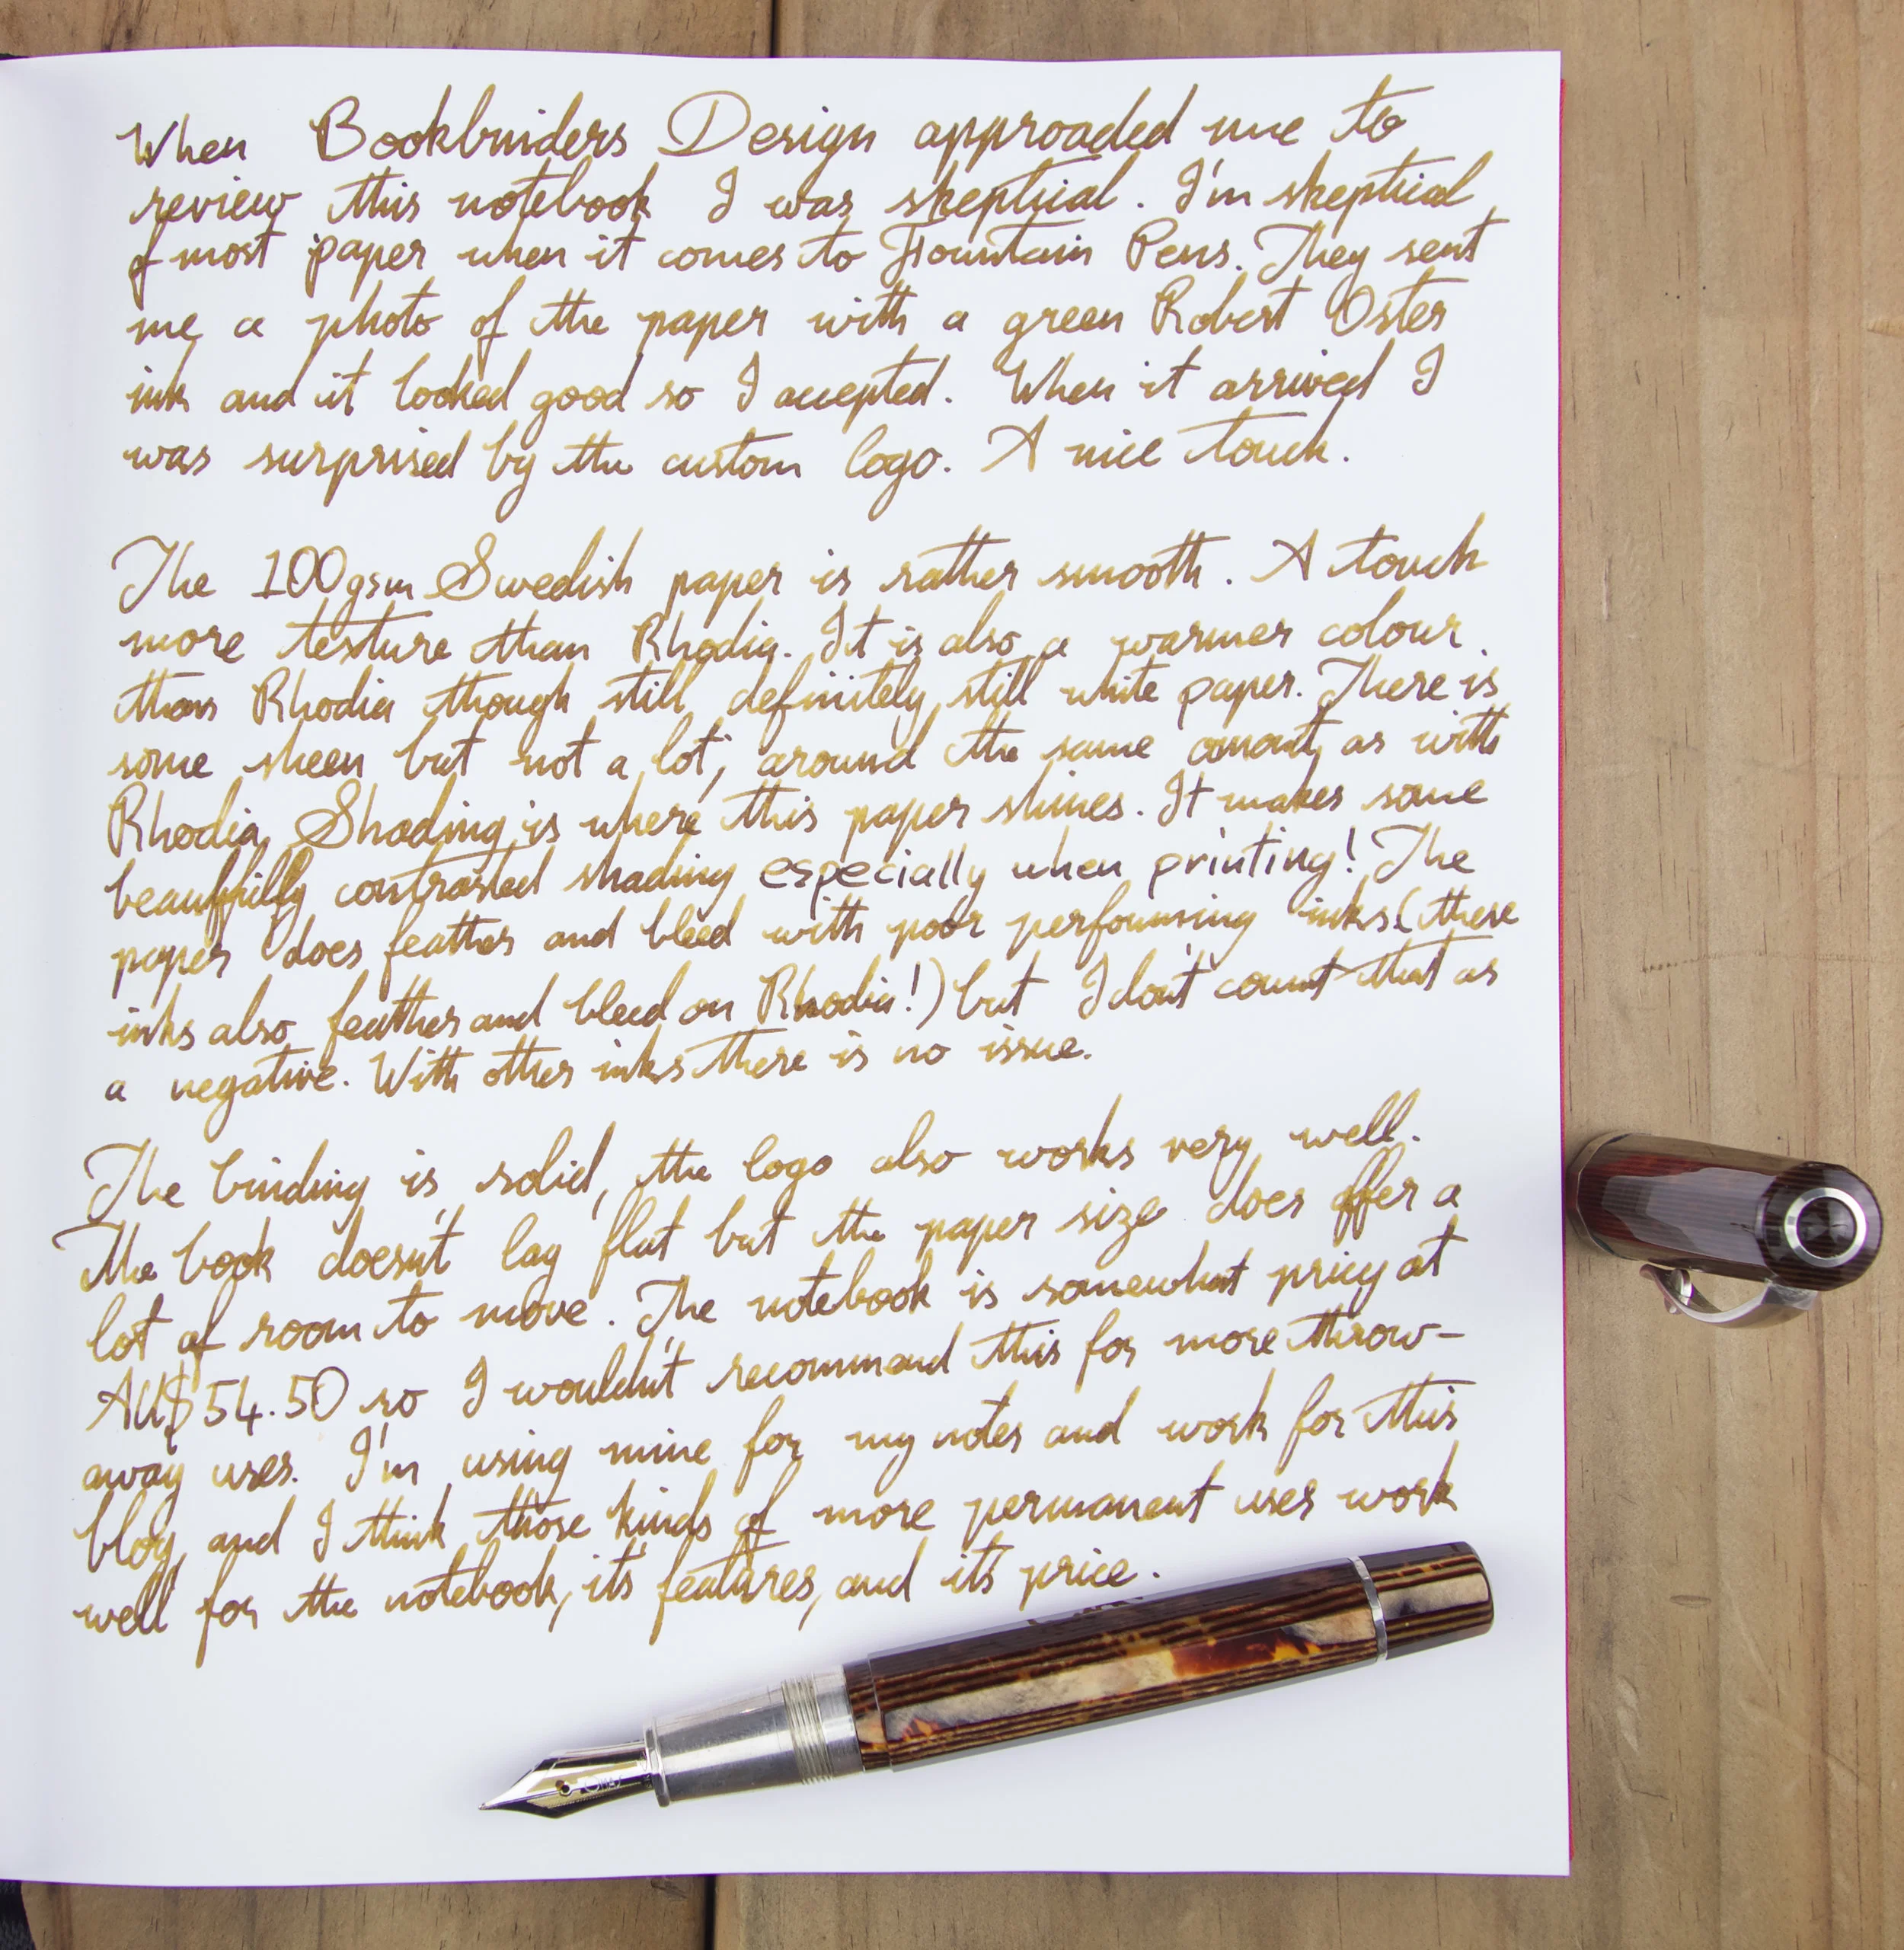 When Bookbinders Design approached me to
review this notebook I was skeptical. I'm skeptical
of most paper when it comes to Fountain Pens. They sent
me a photo of the paper with a green Robert Oster
ink and it looked good so I accepted. When it arrived I
was surprised by the custom logo. A nice touch.
The 100gsm Swedish paper is rather smooth. A touch
more texture than Rhodia. It is also a warmer colour
than Rhodia though still definitely still white paper. There is
some sheen but not a lot; around the same amount as with
Rhodia. Shading is where this paper shines. It makes some
beautifully contrasted shading especially when printing! The
paper does feather and bleed with poor performing inks (these
inks also feather and bleed on Rhodia!) but I don't count that as
a negative. With other inks there is no issue.
The binding is solid, the logo also works very well.
The book doesn't lay flat but the paper size does offer a
lot of room to move. The notebook is somewhat pricy at
AU$54.50 so I wouldn't recommend this for more throw-
away uses. I'm using mine for my notes and work for this
blog, and I think those kinds of more permanent uses work
well for the notebook, it's features, and it's price.
OMAS